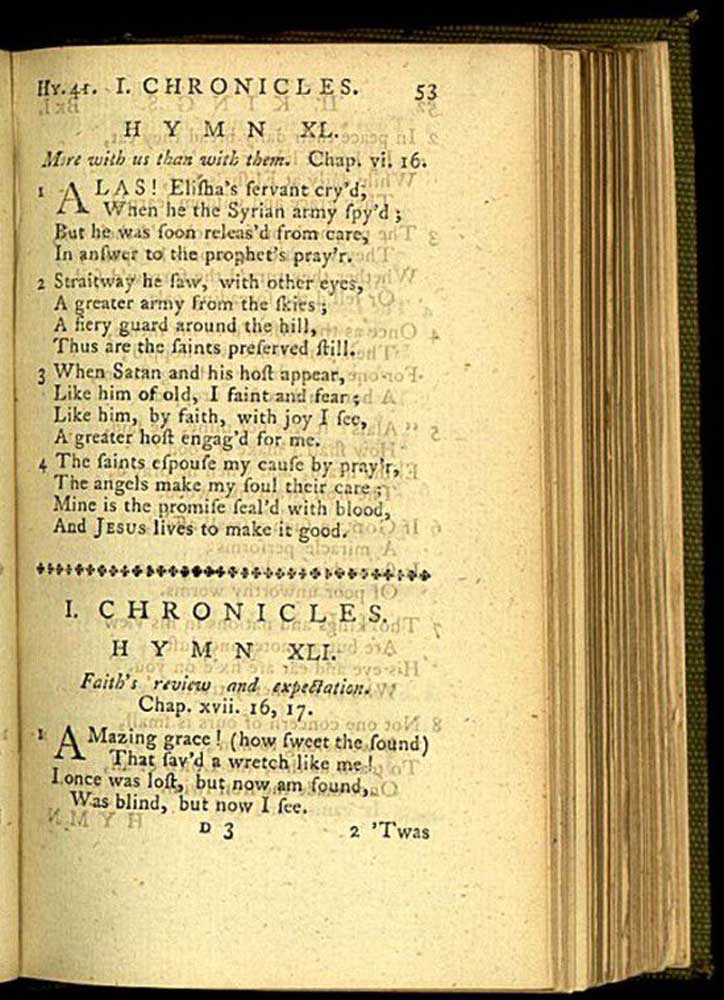 Hy. 41. I. CHRONICLES. 53
HYMN XL.
More with us than with them. Chap. vi. 16.
1 ALAS! Eliſha's ſervant cry'd,
When he the Syrian army ſpy'd ;
But he was ſoon releas'd from care,
In anſwer to the prophet's pray'r.
2 Straitway he ſaw, with other eyes,
A greater army from the ſkies ;
A fiery guard around the hill,
Thus are the ſaints preſerved ſtill.
3 When Satan and his hoſt appear,
Like him of old, I faint and fear ;
Like him, by faith, with joy I ſee,
A greater hoſt engag'd for me.
4 The ſaints eſpouſe my cauſe by pray'r,
The angels make my ſoul their care ;
Mine is the promiſe ſeal'd with blood,
And Jesus lives to make it good.
I. CHRONICLES.
HYMN XLI.
Faith's review and expectation.
Chap. xvii. 16, 17.
1 AMazing grace ! (how ſweet the ſound)
That ſav'd a wretch like me !
I once was loſt, but now am found,
Was blind, but now I ſee.
D 3 2 'Twas